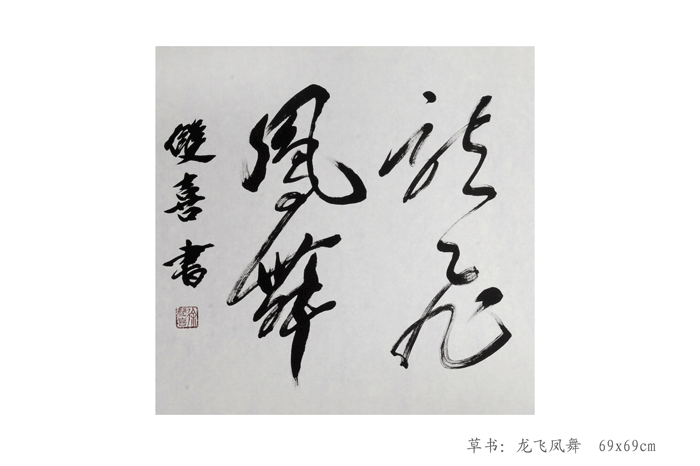 龍飛
鳳舞
雙喜書
草书：龙飞凤舞 69x69cm